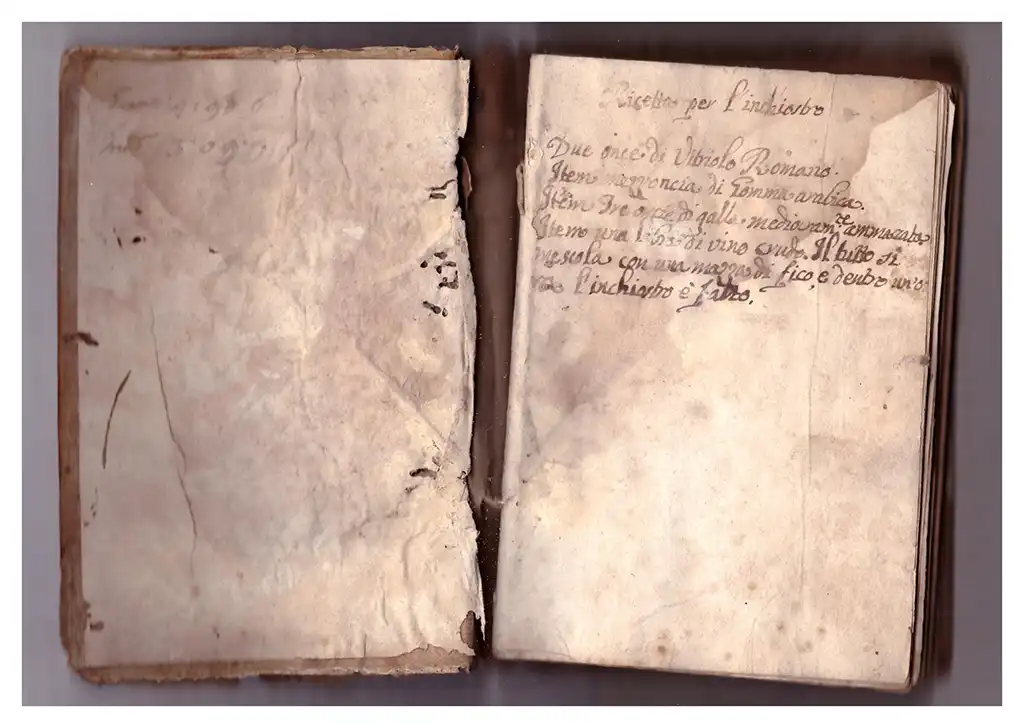 Ricetta per l'inchiostro
Due once di Vitriolo Romano.
Item mezz'oncia di Gomma arabica.
Item Tre once di galle mediocram.te ammacate
Item una libra di vino crudo. Il tutto si
mescola con una mazza di fico, e dentro un'o
l'inchiostro è fatto.